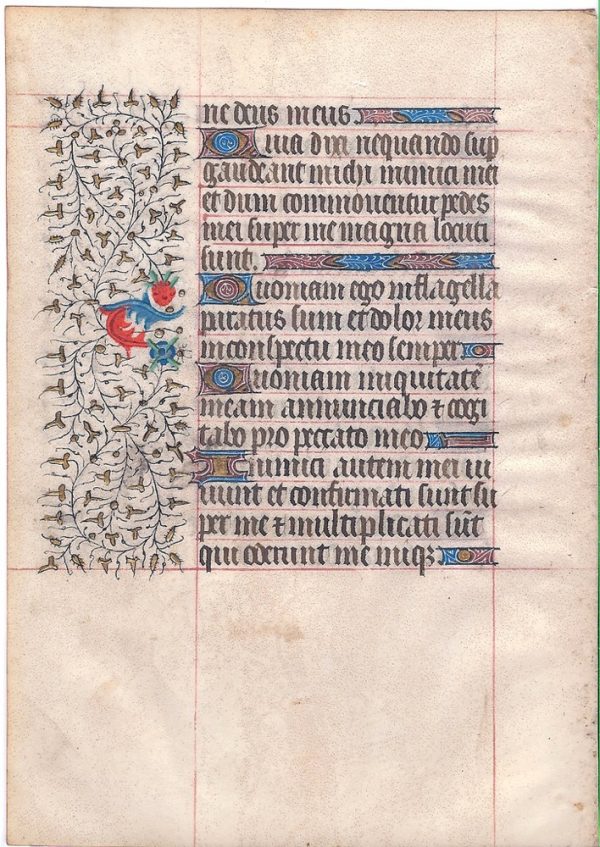 ne deus meus.
Quia dixi nequando sup
gaudeant michi inimici mei
et dum commouentur pedes
mei super me magna locuti
sunt.
Quoniam ego in flagella
paratus sum et dolor meus
in conspectu meo semper
Quoniam iniquitatē
meam annunciabo ⁊ cogi
tabo pro peccato meo
Inimici autem mei ui
uunt et confirmati sunt su
per me ⁊ multiplicati sūt
qui oderunt me iniqꝫ